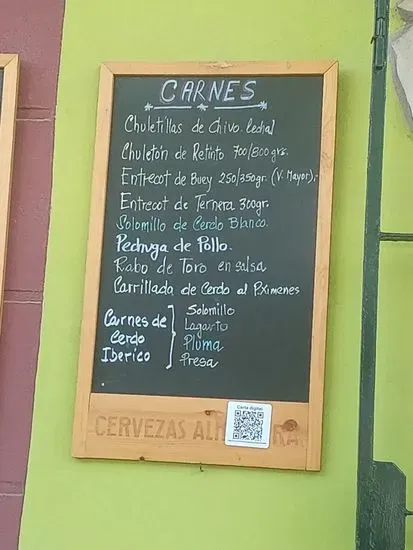 CARNES
Chuletillas de Chivo lechal
Chuletón de Retinto 700/800grs.
Entrecot de Buey 250/350gr. (V. Mayor).
Entrecot de Ternera 300gr.
Solomillo de Cerdo Blanco.
Pechuga de Pollo.
Rabo de Toro en salsa
Carrillada de Cerdo al P.Ximenes
Carnes de
Cerdo
Iberico
Solomillo
Lagarto
Pluma
Presa
Carta digital
CERVEZAS